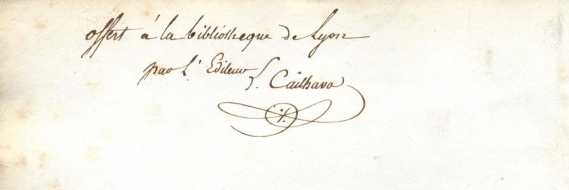 offert à la bibliotheque de Lyon
par l'Editeur L. Cailhava